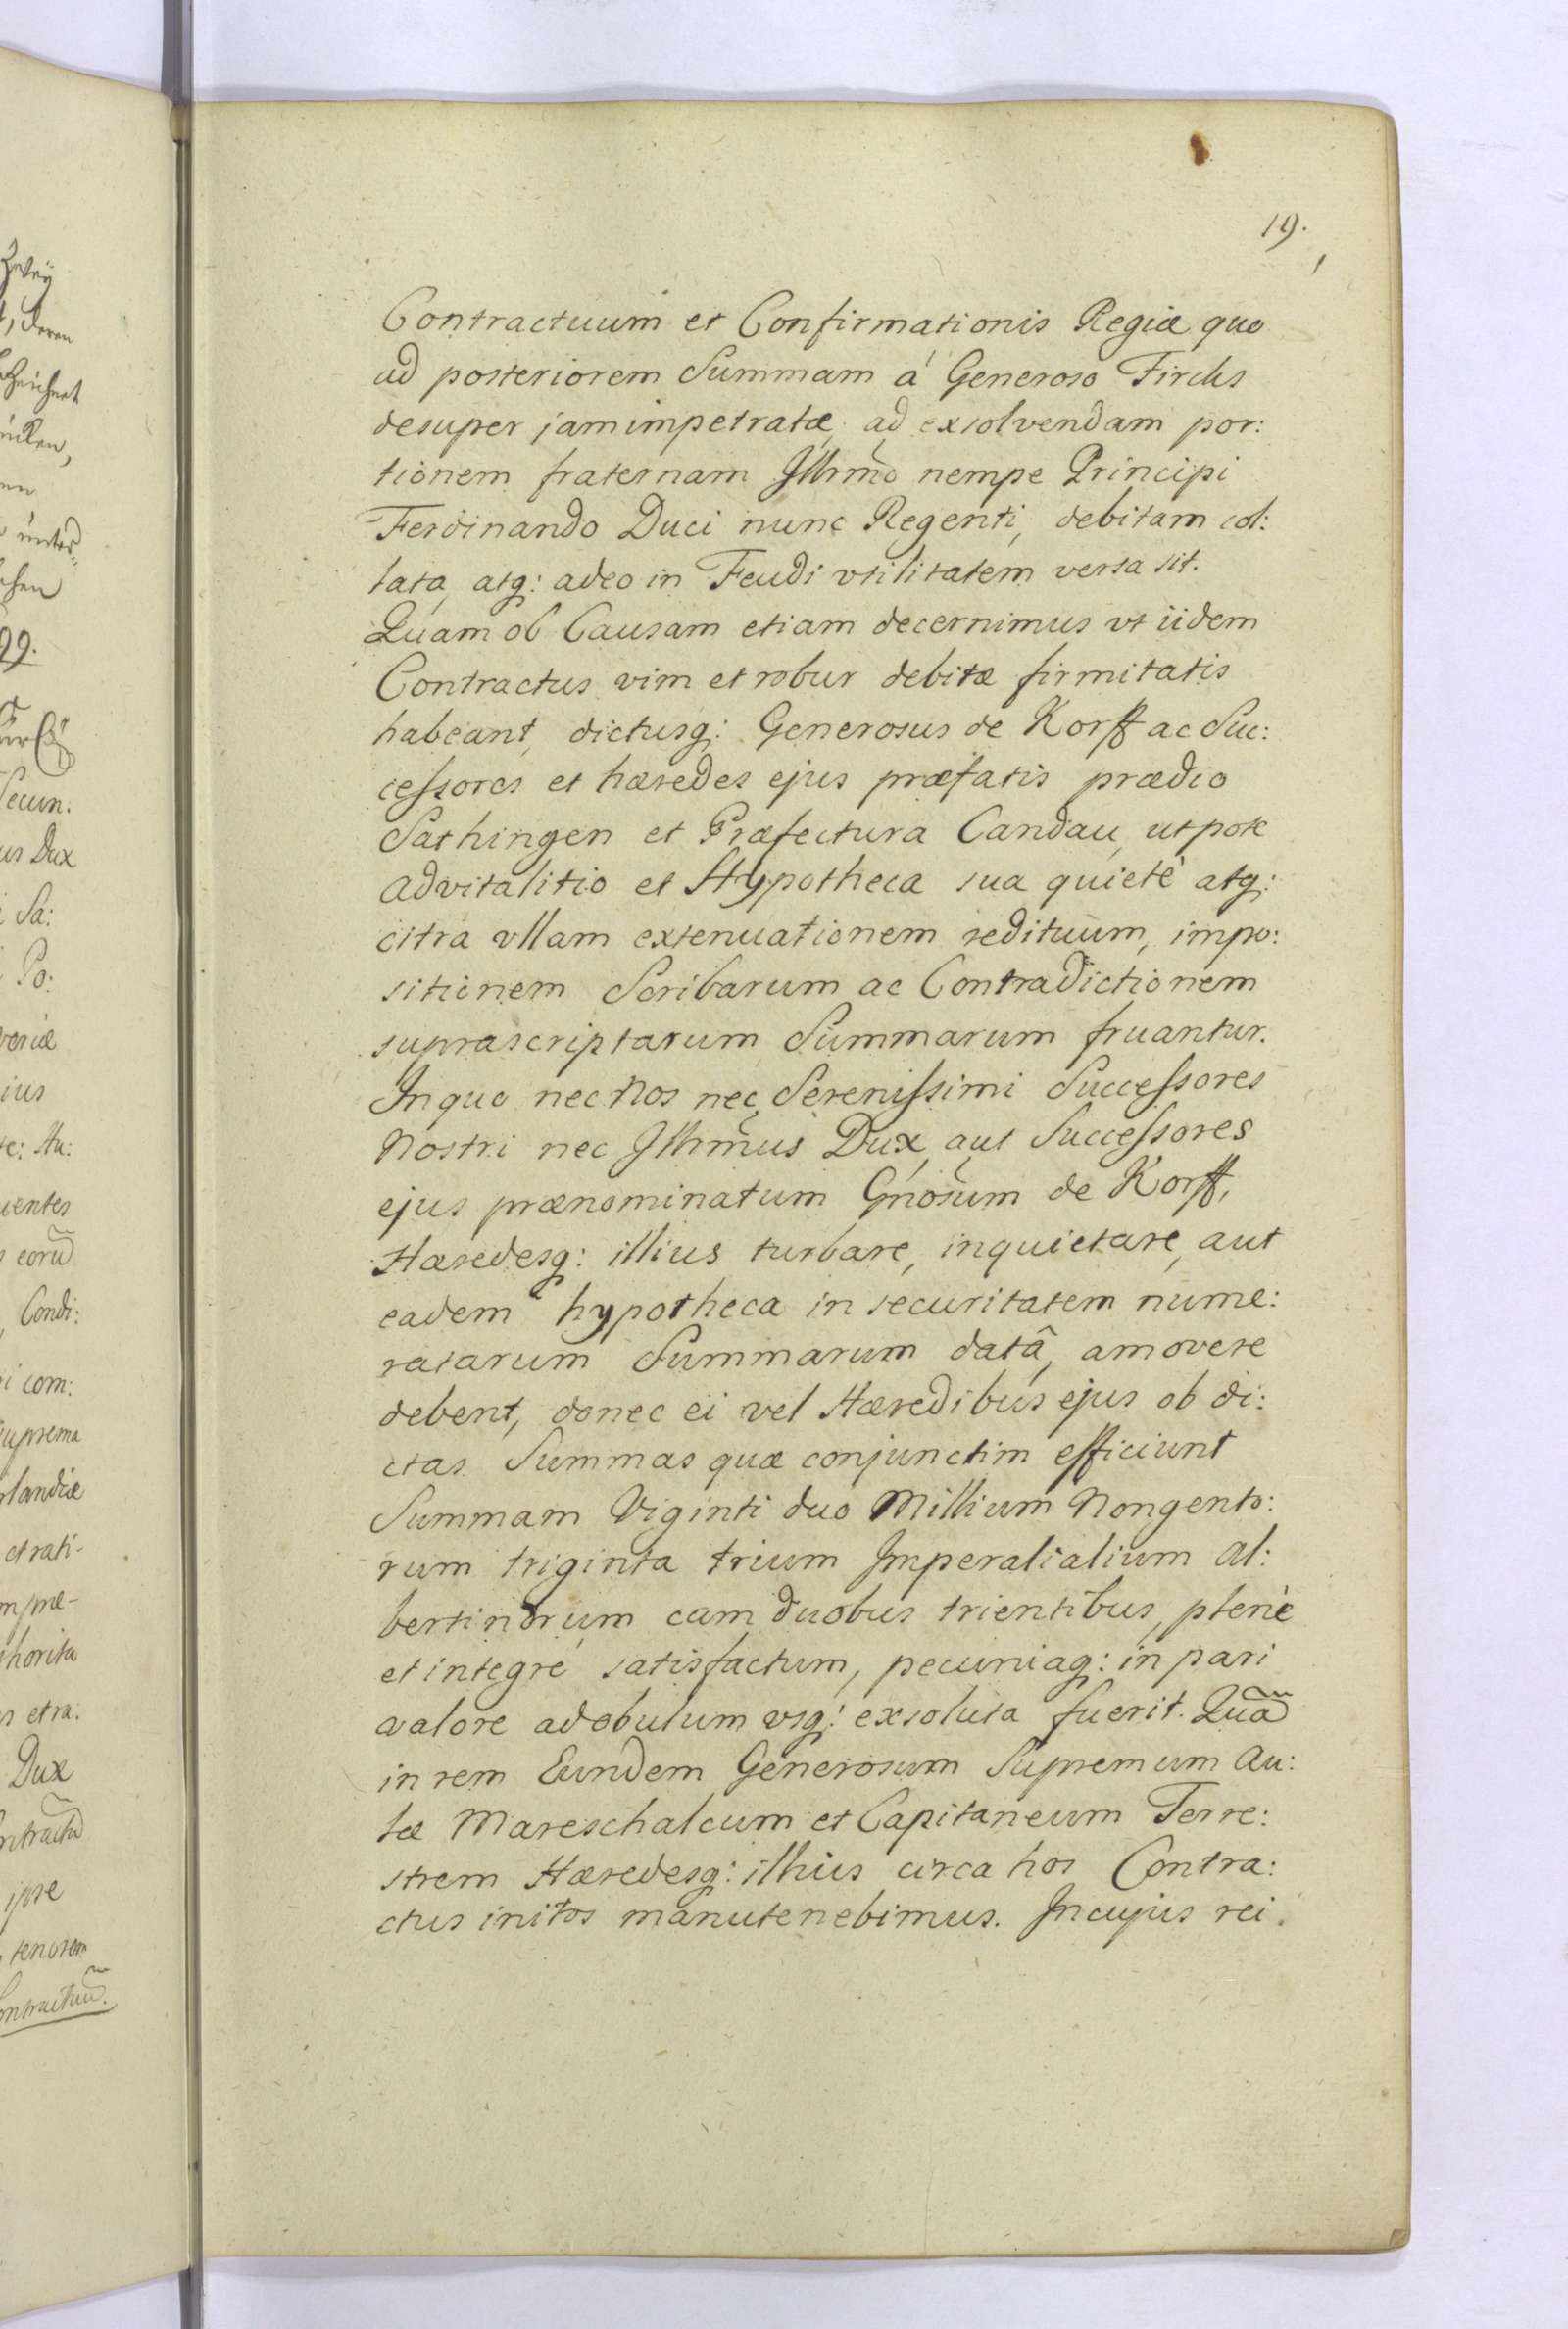 19.
Contractuum et Confirmationis Regiæ quo
ad posteriorem Summam á Generoso Fircks
desuper jam impetratæ, ad exsolvendam por:
tionem fraternam Illrm̃o nempe Principi
Ferdinando Duci nunc Regenti, debitam col:
lata, atq: adeo in Feudi vtilitatem versa sit.
Quam ob Causam etiam decernimus vt iidem
Contractus vim et robur debitæ firmitatis
habeant, dictusq: Generosus de Korff ac Suc:
ceſsores et hæredes ejus præfatis prædio
Sathingen et Præfectura Candau, utpote
advitalitio et Hypotheca sua quietè atq:
citra vllam extenuationem redituum, impo:
sitionem Scribarum ac Contradictionem
suprascriptarum Summarum fruantur.
In quo nec Nos nec Sereniſsimi Succeſsores
Nostri nec Illrm̃us Dux, aut Succeſsores
ejus prænominatum Gnõsum de Korff,
Hæredesq: illius turbare, inquietare, aut
eadem hypotheca in securitatem nume:
ratarum Summarum datâ, amovere
debent, donec ei vel Hæredibus ejus ob di:
ctas Summas quæ conjunctim efficiunt
Summam Viginti duo Millium Nongento:
rum triginta trium Imperalialium Al:
bertinorum cum duobus trientibus, plenè
et integré satisfactum, pecuniaq: in pari
valore ad obulum vsq: exsoluta fuerit. Quã
in rem Eundem Generosum Supremum Au:
læ Mareschalcum et Capitaneum Terre:
strem Hæredesq: illius circa hos Contra:
ctus initos manutenebimus. In cujus rei
Zwey
Secun:
us Dux
Sa:
Po:
ius
eorũ
Condi:
i com:
Suprema
rlandiæ
et ra:
Dux
ipse
tenorem